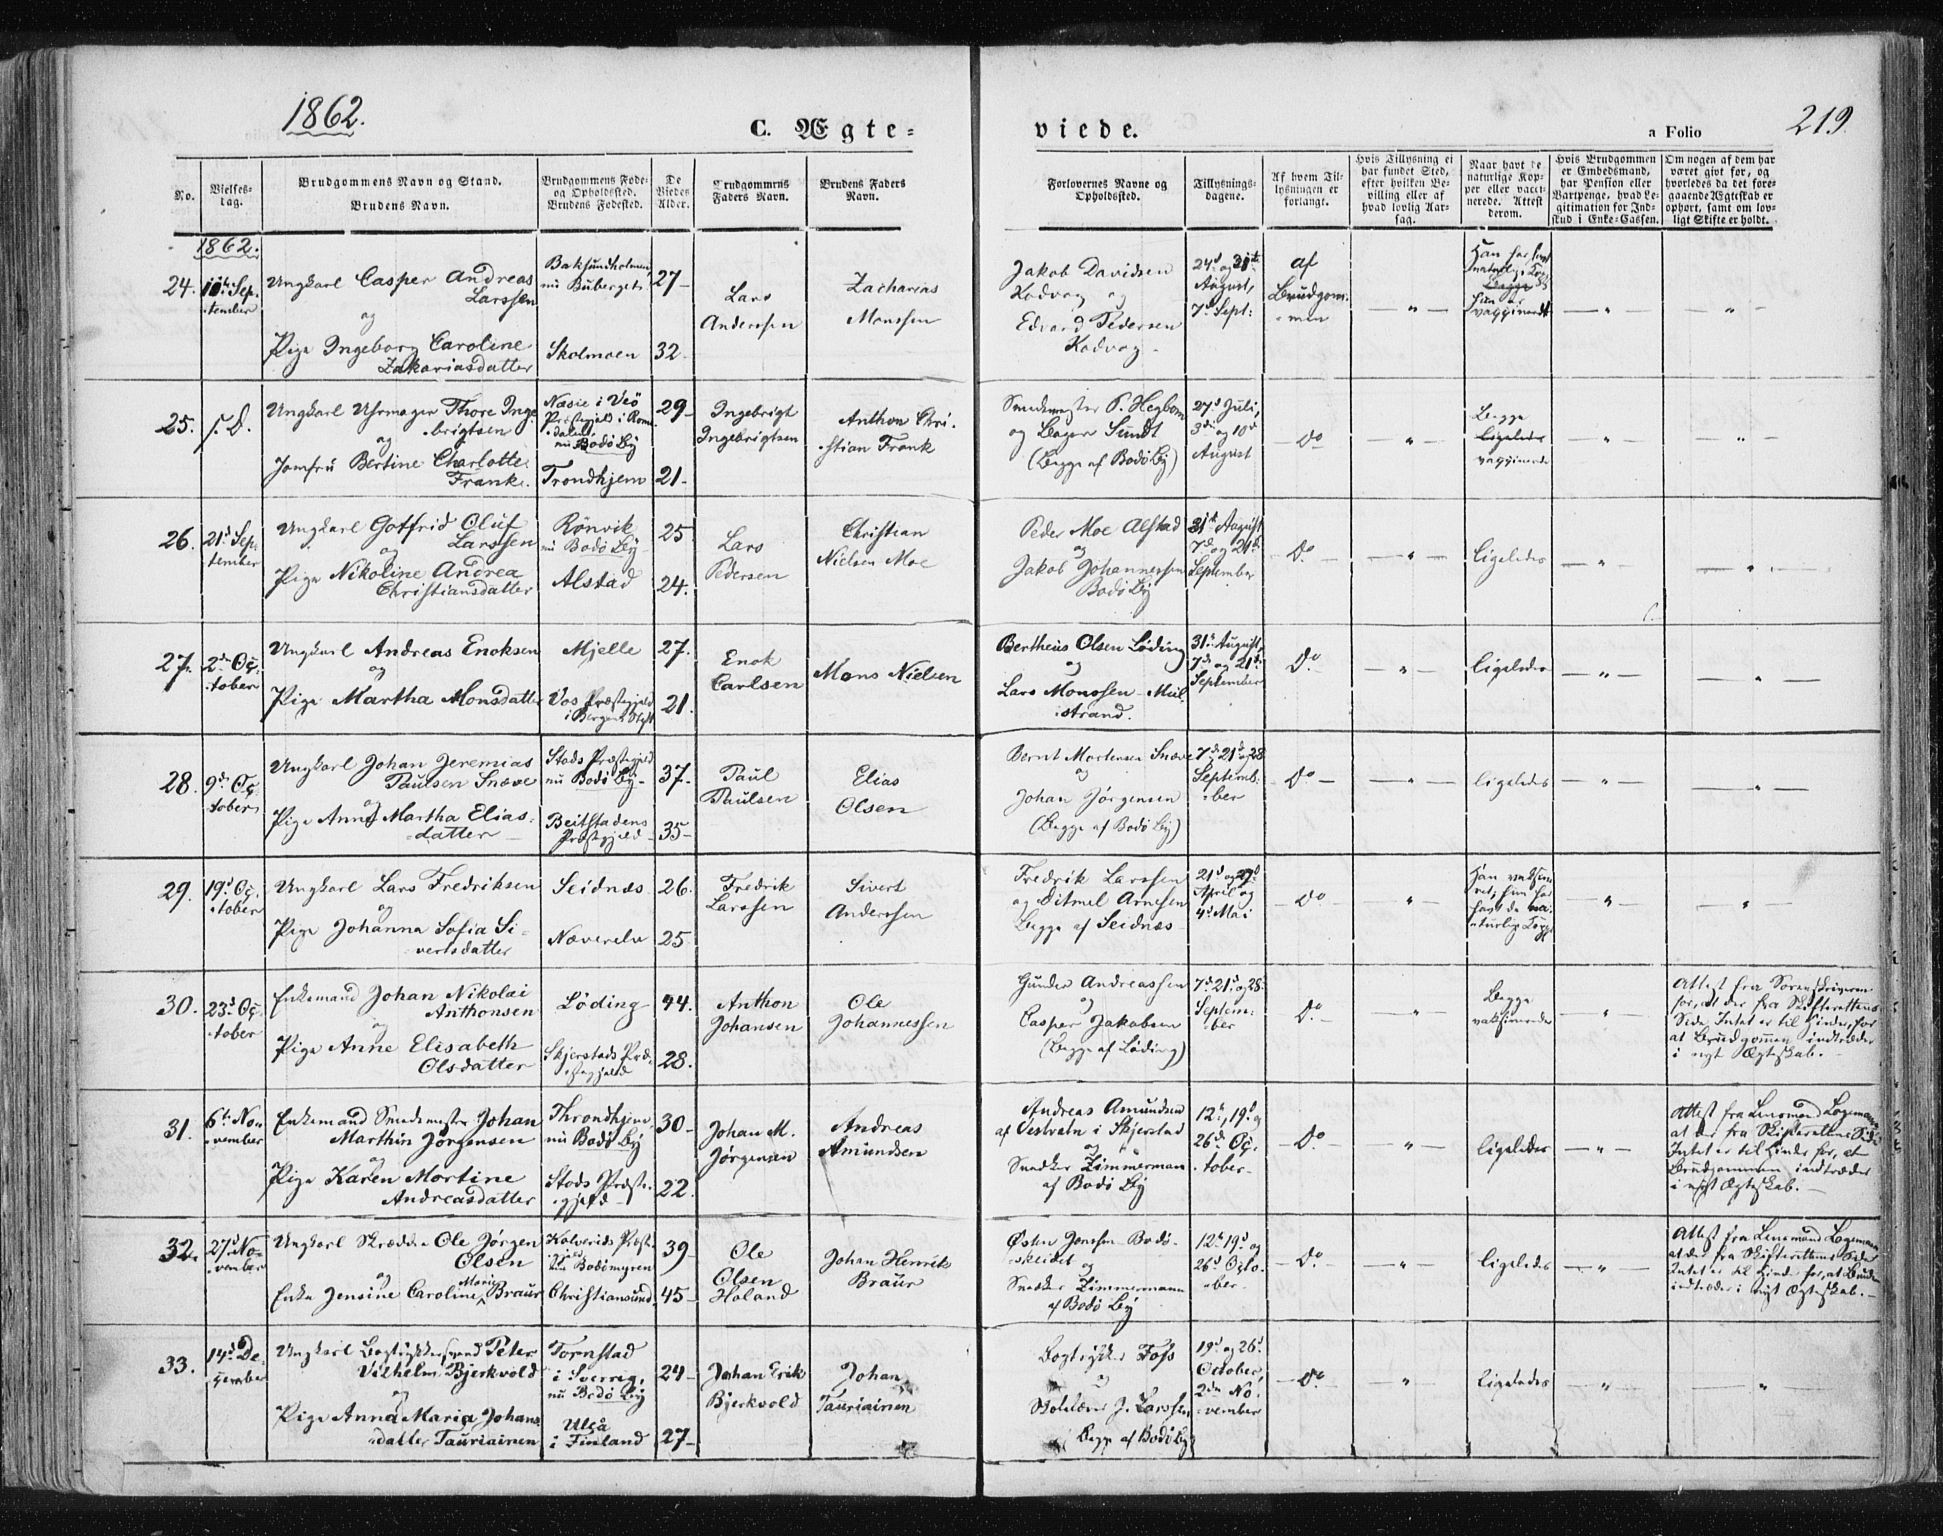 1862.
C. Ægte=
viede.
a Folio
219.
No.
Vielses-
dag.
Brudgommens Navn og Stand.
Brudens Navn.
Brudgommens Føde-
og Opholdssted.
Brudens Fødested.
De
Viedes
Alder.
Brudgommens
Faders Navn.
Brudens Faders
Navn.
Forlovernes Navne og
Opholdssted.
Tillysnings-
dagene.
Af hvem Til-
lysningen er
forlangt.
Hvis Tillysning ei
har fundet Sted,
efter hvilken Be-
villing eller af
hvad lovlig Aar-
sag.
Naar havt de
naturlige Kop-
per eller vacci-
nerede. Attest
derom.
Hvis Brudgommen
er Embedsmand,
har Pension eller
Vartpenge, hvad Le-
gitimation for Ind-
skud i Enke-Cassen.
Om nogen af dem har
været givt før, og
hvorledes da det fore-
gaaende Ægteskab er
ophørt, samt om lov-
ligt Skifte er holdt.
1862.
24.
11te Sep-
tember
Ungkarl Casper Andreas
Larssen
og
Pige Ingeborg Caroline
Zakariasdatter
Baksundholmen,
nu Buberget
Skolmoen
27
32
Lars
Anderssen
Zacharias
Monssen
Jakob Davidsen
Kodvag og
Edvard Pedersen
Kodvag
24d og 31te
August,
7d Sept:
af
Brudgom-
men
25.
s. D.
Ungkarl Uhrmager Thore Inge-
brigtsen
og
Jomfru Bertine Charlotte
Frank.
Næsie i Veö
Præstegjeld i Rom-
dalen,
nu Bodö By
Trondhjem
29
21
Ingebrigt
Ingebrigtsen
Anthon Chri-
stian Frank
Smedemester P. Hegbom
og Bager Sundt
(Begge af Bodö By)
27d Juli,
3die og 10d
August
Do
Begge
vaxxinerede
26.
21d Sep-
tember
Ungkarl Gotfrid Oluf
Larssen
og
Pige Nikoline Andrea
Christiansdatter
Rönvik
nu Bodö By
Alstad
25
24.
Lars
Pedersen
Christian
Nielsen Moe
Peder Moe Alstad
og
Jakob Johannessen
Bodö By
31te August
7d og 21d
September
Do
ligeledes
27.
2den Oc-
tober
Ungkarl Andreas Enoksen
og
Pige Martha Monsdatter
Mjelle
Vos Præstegjeld
i Bergens Stift
27.
21.
Enok
Carlsen
Mons Nielsen
Bertheus Olsen Löding
og
Lars Monssen Mul-
strand.
31te August,
7d og 21d
September
Do
ligeledes
28.
9de Oc-
tober
Ungkarl Johan Jeremias
Paulsen Snæve
og
Pige Anna Martha Elias-
datter
Stods Præstegjeld
nu Bodö By
Beitstadens
Præstegjeld
37
35
Paul
Paulsen
Elias
Olsen
Bernt Mortensen Snæve
og
Johan Jörgensen
(Begge af Bodö By)
7d 21d og 28
Septem-
ber
Do
ligeledes
29.
19d Oc-
tober
Ungkarl Lars Fredriksen
og
Pige Johanna Sofia Si-
vertsdatter
Seidnæs
Næverelv
26.
25
Fredrik
Larssen
Sivert
Anderssen
Fredrik Larssen
og Ditmel Arnesen
Begge af Seidnæs
21d og 27d
April og
4d Mai
Do
30.
23d Oc-
tober
Enkemand Johan Nikolai
Anthonsen
og
Pige Anne Elisabeth
Olsdatter
Löding
Skjerstads Præ-
stegjeld
44.
28.
Anthon
Johansen
Ole
Johannessen
Gunder Andreassen
og
Casper Jakobsen
(Begge af Löding)
7d 21d og 28
Septem-
ber
Do
Begge
vaksinerede
Attest fra Sorenskriveren
for, at der fra Skifterettens
Side Intet er til Hinder for
at Brudgommen indtræder
i nyt Ægteskab.
31.
6te No-
vember
Enkemand Smedemester Johan
Marthin Jörgensen
og
Pige Karen Mortine
Andreasdatter
Throndhjem
nu Bodö By
Stods Præste-
gjeld
30
22.
Johan M.
Jörgensen
Andreas
Amundsen
Andreas Amundsen
af Vestvatn i Skjerstad
og
Snedker Zimmerman
af Bodö By
12te, 19d og
26de Oc-
tober
Do
ligeledes
Attest fra Lensmand Logemann
at der fra Skifterettens Side
Intet er til Hinder for, at
Brudgommen indtræder
i nyt Ægteskab.
32.
27d No-
vember
Ungkarl Skrædder Ole Jörgen
Olsen
og
Enke Jensine Caroline Marie Braur
Kolvereids Præste-
gjeld
nu Bodömyren
Christiansund
39
45
Ole
Olsen
Holand
Johan Henrik
Braur
Östen Jenssen Bodö-
skeidet
og
Snedker Zimmermann
af Bodö By
12te 19d og
26d Octo-
ber
Do
ligeledes
Attest fra Lensmand Logemann
at der fra Skifterettens Side
Intet er til Hinder for, at Bruden
indtræder i nyt Ægteskab.
33.
14d De-
cember
Ungkarl Bogtrykkersvend Peter
Vilhelm Bjerkvold
og
Pige Anna Maria Johans-
datter Tauriainen
Tornstad
i Sverrig,
nu Bodö By
Uleå
i Finland
24
27
Johan Erik
Bjerkvold
Johan
Tauriainen
Bogtrykker Foss
og
J. Larssen
(Begge af Bodö By
19d og 26d
October,
2den No-
vember
Do
ligeledes